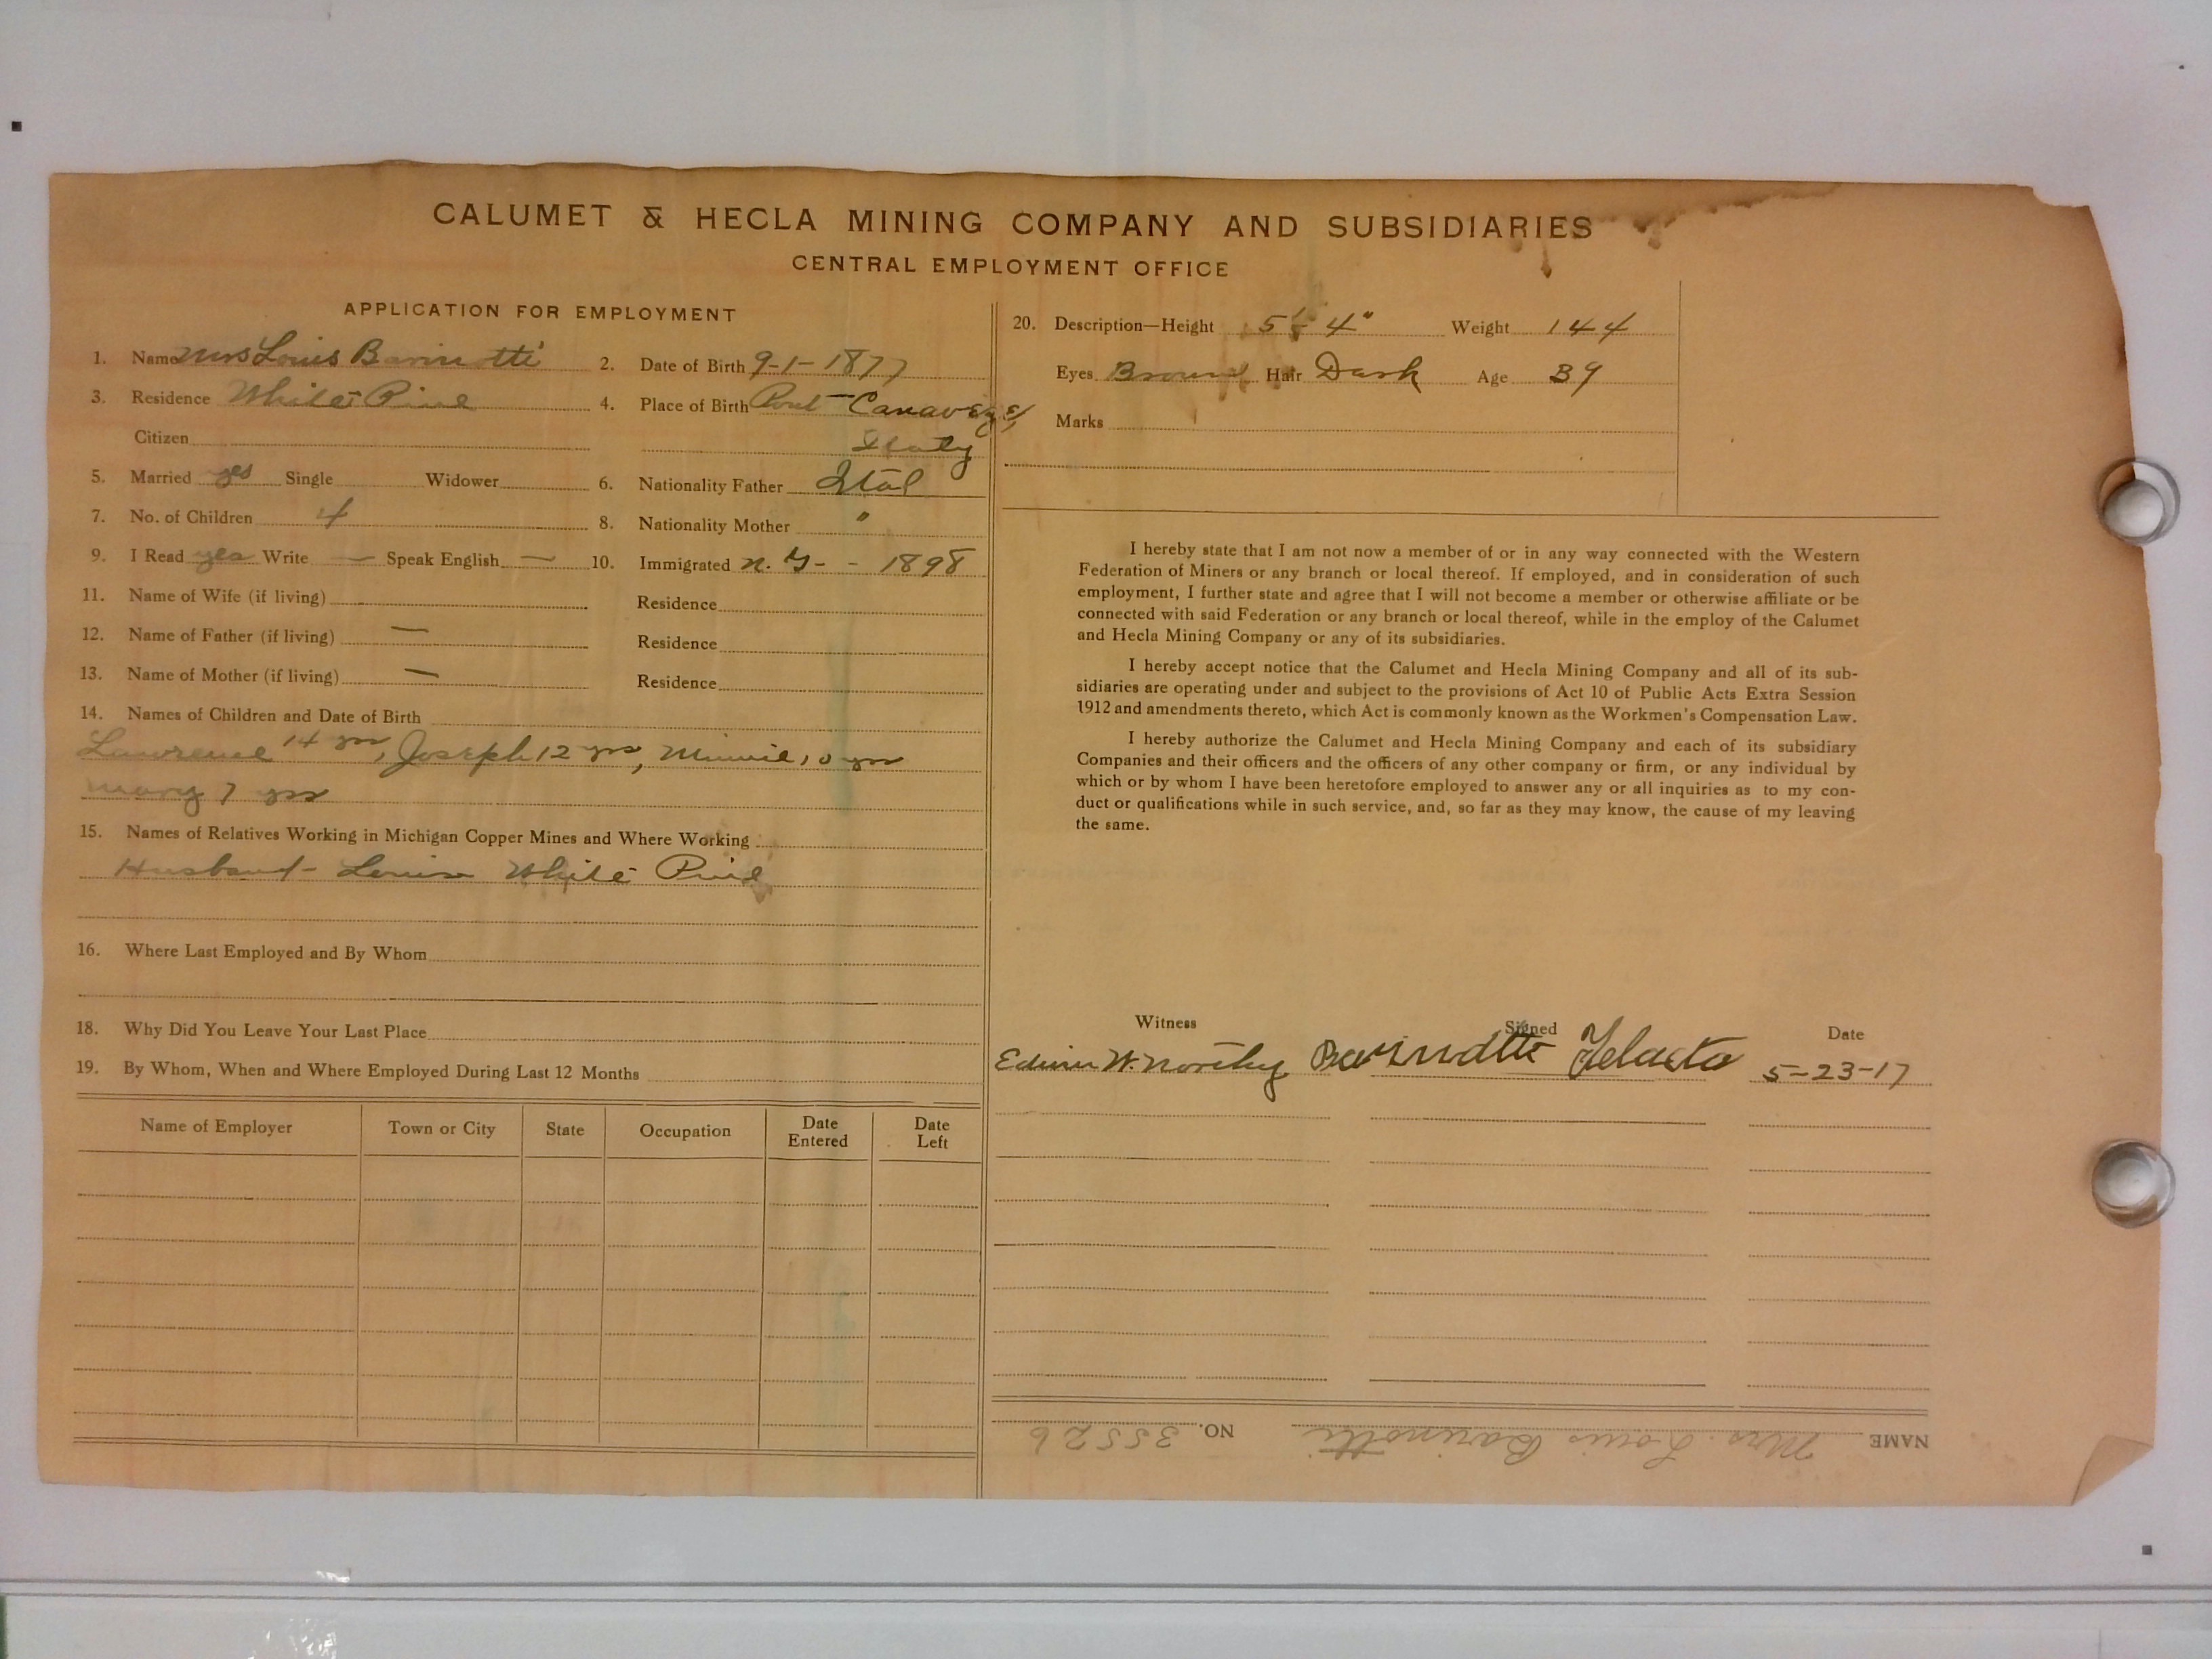 CALUMET & HECLA MINING COMPANY AND SUBSIDIARIES
CENTRAL EMPLOYMENT OFFICE
APPLICATION FOR EMPLOYMENT
1. Name Mrs Louis Barinotti 2. Date of Birth 9-1-1877
3. Residence White Pine 4. Place of Birth Pont Canavese
Citizen Italy
5. Married yes Single Widower 6. Nationality Father Ital
7. No. of Children 4 8. Nationality Mother "
9. I Read yes Write — Speak English — 10. Immigrated N.Y- - 1898
11. Name of Wife (if living) Residence
12. Name of Father (if living) — Residence
13. Name of Mother (if living) — Residence
14. Names of Children and Date of Birth
Lawrence 14 yrs, Joseph 12 yrs, Minnie, 10 yrs
Mary 7 yrs
15. Names of Relatives Working in Michigan Copper Mines and Where Working
Husband - Louis White Pine
16. Where Last Employed and By Whom
18. Why Did You Leave Your Last Place
19. By Whom, When and Where Employed During Last 12 Months
Name of Employer Town or City State Occupation Date Entered Date Left
20. Description—Height 5' 4" Weight 144
Eyes Brown Hair Dark Age 39
Marks
I hereby state that I am not now a member of or in any way connected with the Western
Federation of Miners or any branch or local thereof. If employed, and in consideration of such
employment, I further state and agree that I will not become a member or otherwise affiliate or be
connected with said Federation or any branch or local thereof, while in the employ of the Calumet
and Hecla Mining Company or any of its subsidiaries.
I hereby accept notice that the Calumet and Hecla Mining Company and all of its sub-
sidiaries are operating under and subject to the provisions of Act 10 of Public Acts Extra Session
1912 and amendments thereto, which Act is commonly known as the Workmen's Compensation Law.
I hereby authorize the Calumet and Hecla Mining Company and each of its subsidiary
Companies and their officers and the officers of any other company or firm, or any individual by
which or by whom I have been heretofore employed to answer any or all inquiries as to my con-
duct or qualifications while in such service, and, so far as they may know, the cause of my leaving
the same.
Witness Signed Date
Edwin W. Worthy 5-23-17
NAME Mrs. Louis Barinotti NO. 35526